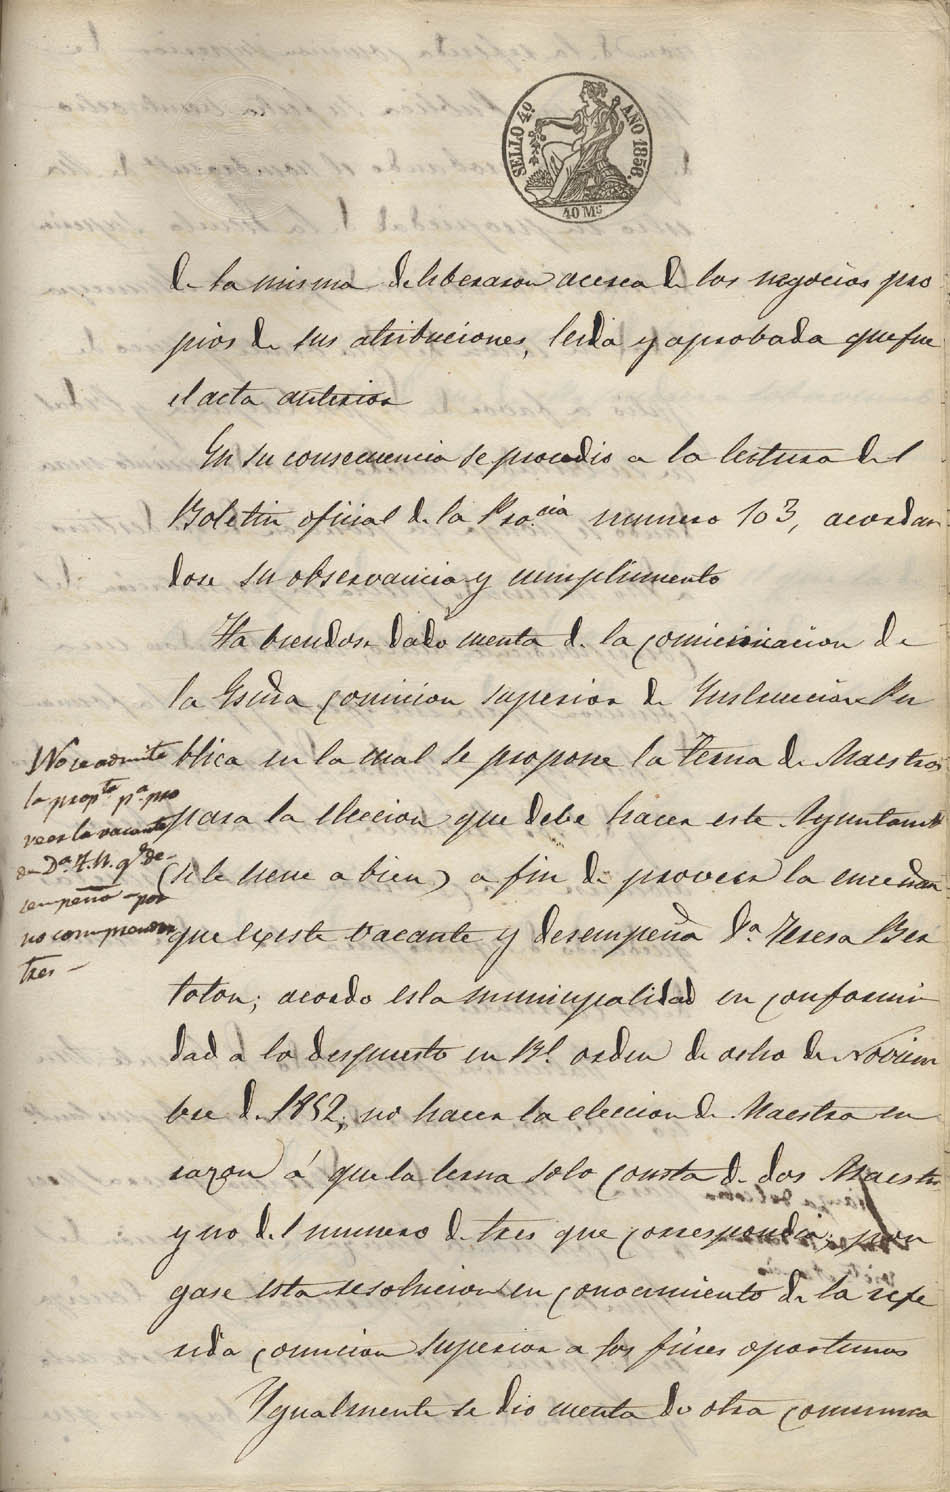 SELLO 4º. AÑO 1856.
40 Ms
de la misma deliberaron acerca de los negocios pro
pios de sus atribuciones, leida y aprobada que fue
el acta anterior
En su consecuencia se procedio a la lectura del
Boletin oficial de la Pro.cia numero 103, acordan
dose su observancia y cumplimiento
Habiendose dado cuenta de la comunicacion de
la Escma comicion superior de Ynstruccion Pu
blica en la cual se propone la terna de Maestras
para la eleccion que debe hacer este Ayuntamto
(si lo tiene a bien) a fin de proveer la enseñan
que existe vacante y desempeña Dª Teresa Ber
toton; acordo esta municipalidad en conformi
dad a lo despuesto en Rl. orden de ocho de Noviem
bre de 1852, no hacer la eleccion de Maestra en
razon á que la terna solo consta de dos Maestras
y no del numero de tres que corresponde; pon
gase esta resolucion en conocimiento de la refe
rida comicion superior a los fines oportunos
Ygualmente se dio cuenta de otra comunica
No se admite
la propta pa pro
veer la vacante
de Da. T. B. qe de-
sempeña - por
no comprender
tres -